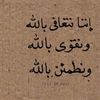 إننا نتعافى بالله
ونقوى بالله
ونطمئن بالله